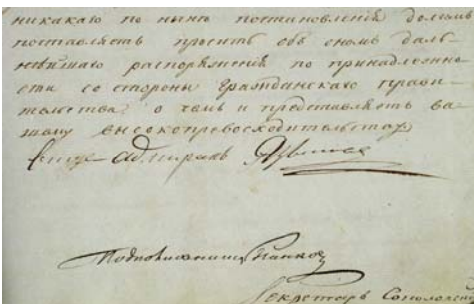 никакаго по нынѣ постановленія долгомъ
поставляетъ просить объ ономъ даль-
нѣйшаго распоряженія по принадлежно-
сти со стороны Гражданскаго прави-
тельства о чемъ и представляетъ ва-
шему высокопревосходительству
Вице-адмиралъ
Подполковникъ
Секретарь